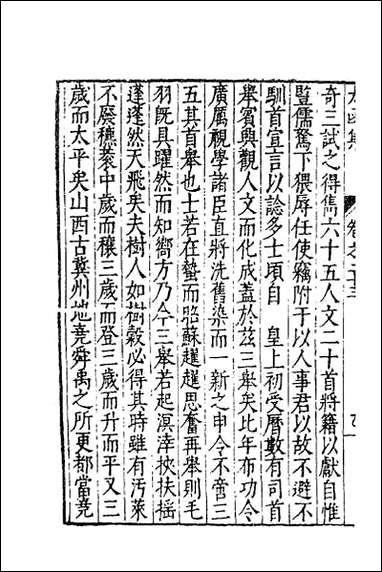 太函集 卷之二十三
奇三試之得雋六十五人文二十首將籍以獻自惟
豎儒駑下猥辱任使竊附于以人事君以故不避不
馴首宣言以諗多士頃自　皇上初受曆數有司首
舉賓興觀人文而化成蓋於茲三舉矣比年布功令
廣厲視學諸臣直將洗舊染而一新之申令不啻三
五其首舉也士若在蟄而昭蘇趯趯思奮再舉則毛
羽旣具躍然而知嚮方乃今三舉若起溟涬挾扶揺
蓬蓬然天飛矣夫樹人如樹穀必得其時雖有汚萊
不廢穮蓘中歲而穰三歲而登三歲而升而平又三
歲而太平矣山西古冀州地堯舜禹之所更都當堯